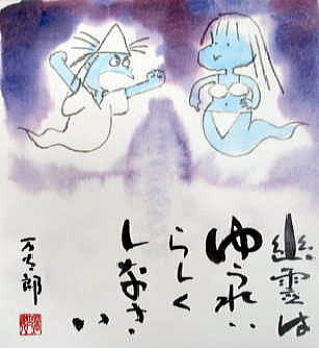 幽霊は
ゆうれい
らしく
しなさい
万太郎